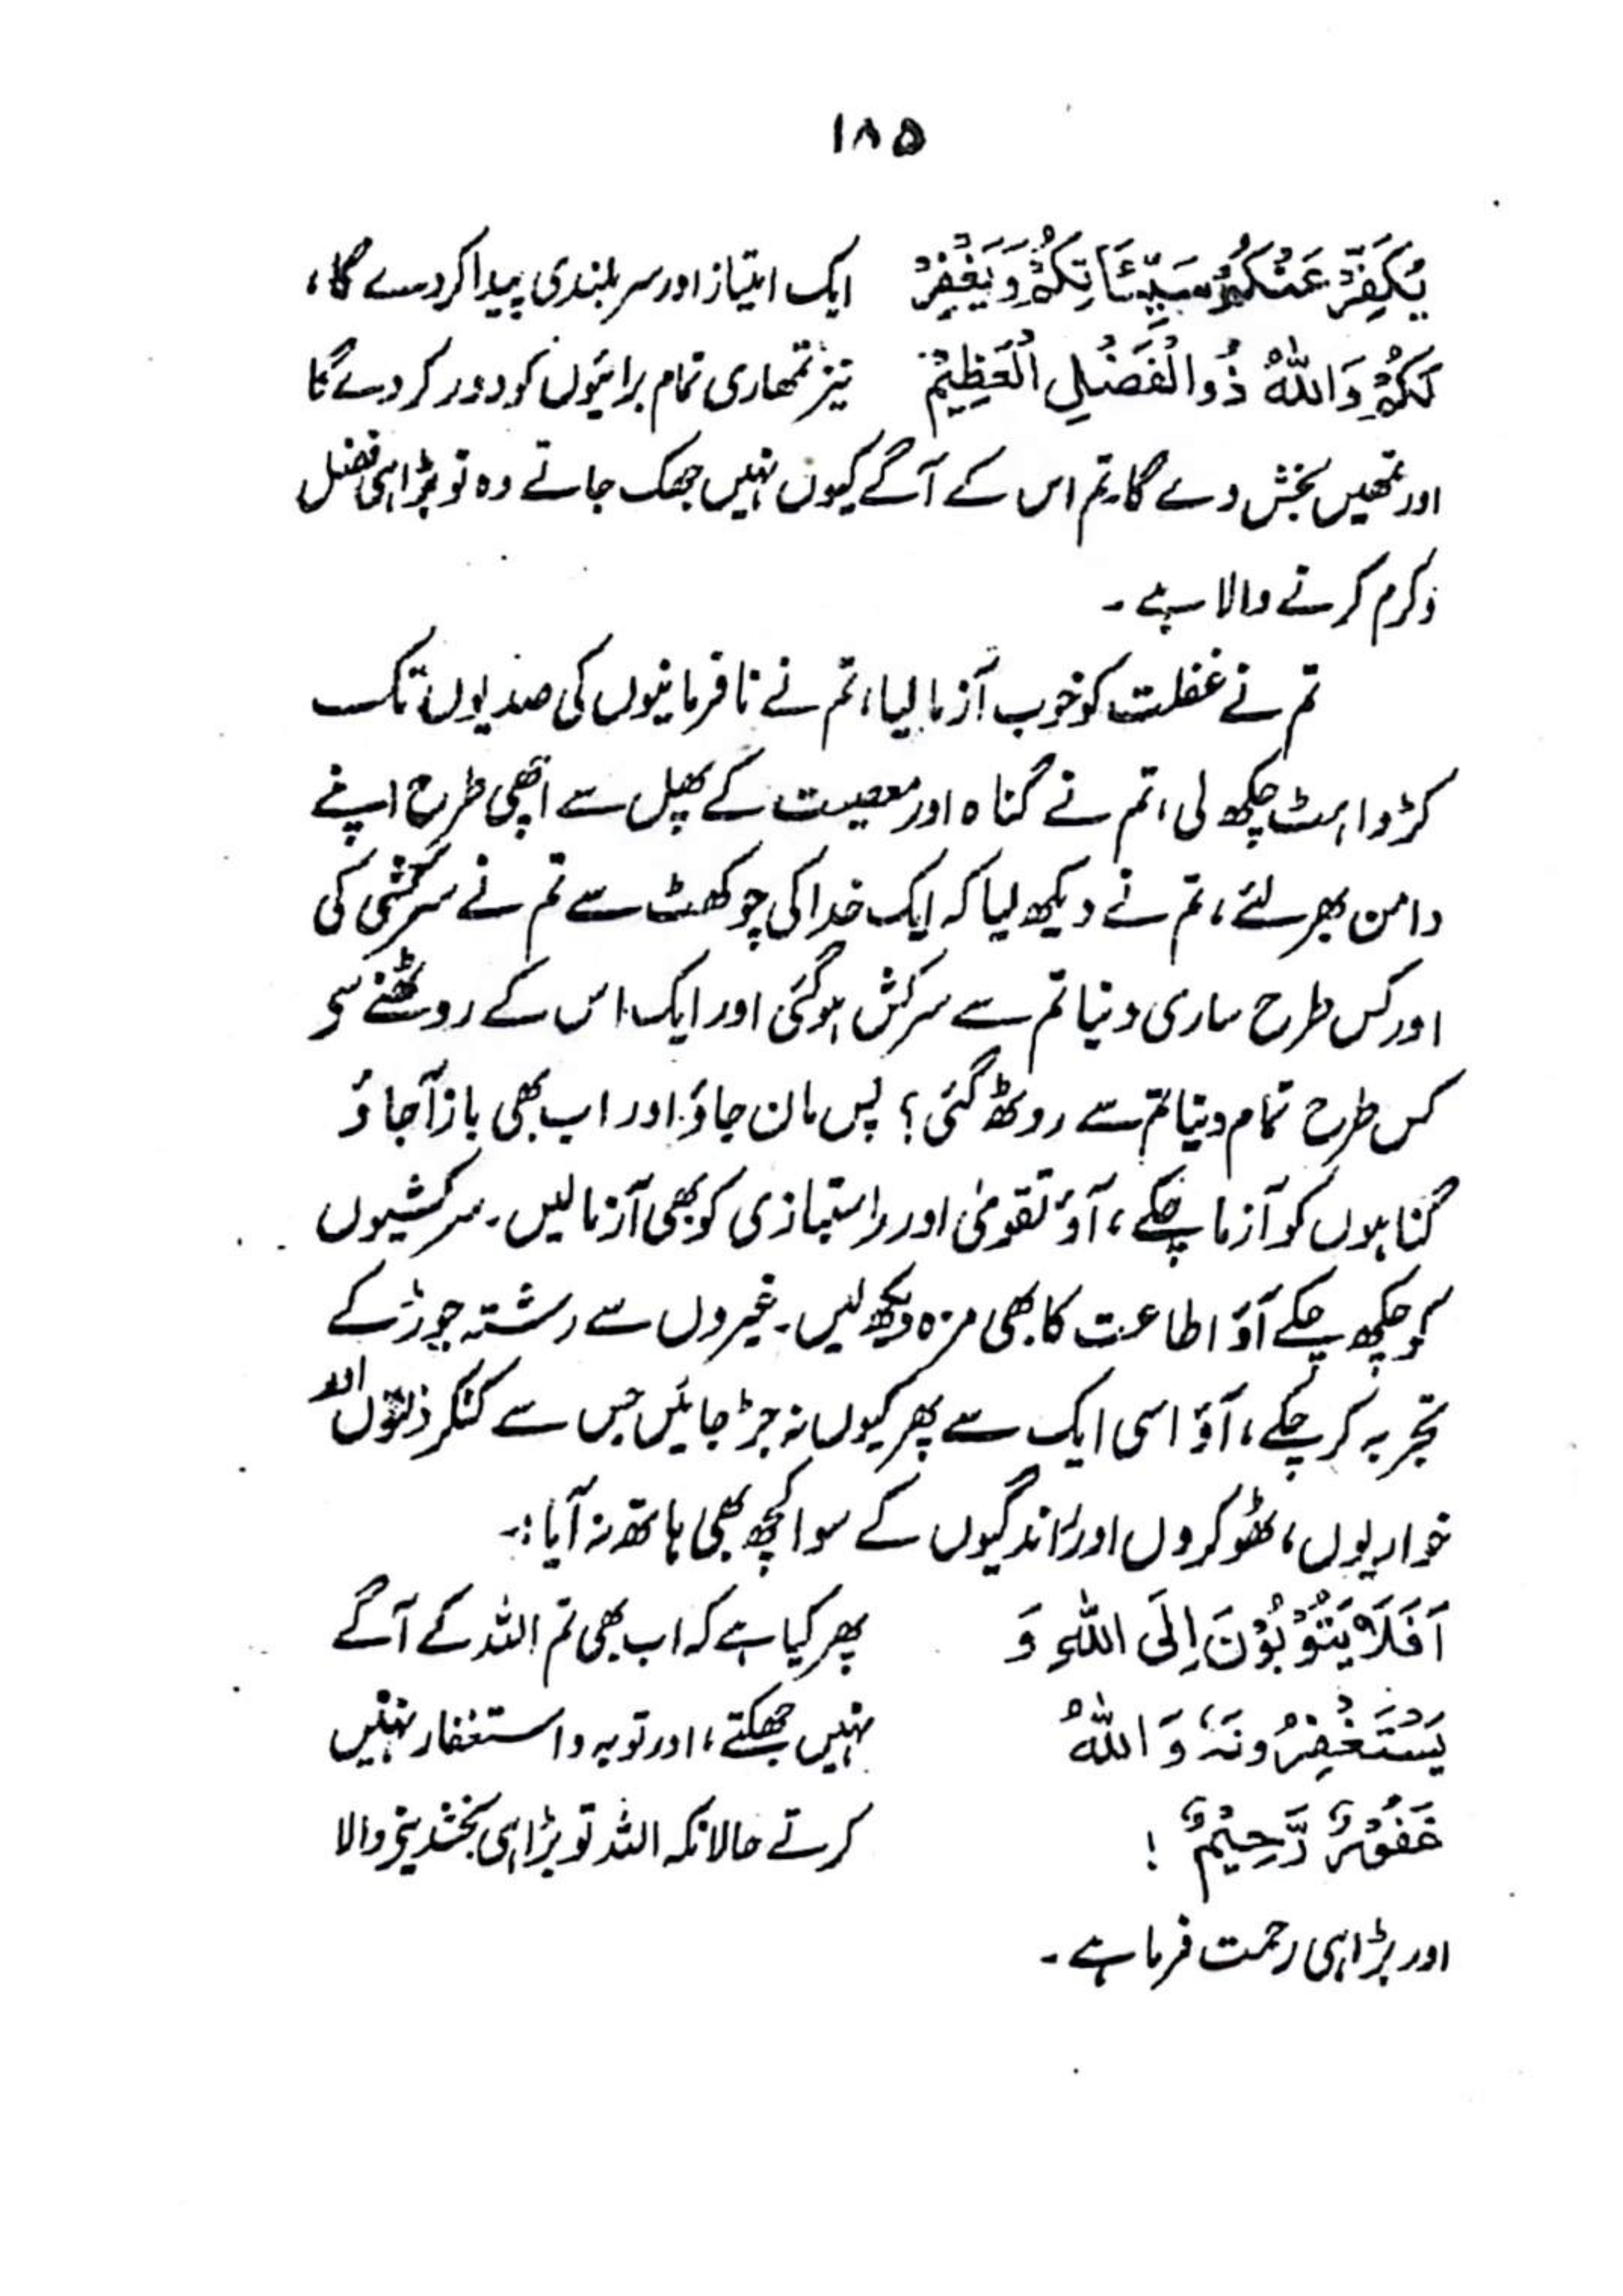 ۱۸۵
یُکَفِّرْ عَنْکُمْ سَیِّئَاتِکُمْ وَیَغْفِرْ ایک امتیاز اور سربلندی پیدا کردے گا،
لَکُمْ وَاللّٰهُ ذُوالْفَضْلِ الْعَظِیْمْ نیز تمھاری تمام برائیوں کو دور کردے گا
اور تمھیں بخش دے گا۔ تم اس کے آگے کیوں نہیں جھک جاتے وہ تو بڑا ہی فضل
وکرم کرنے والا ہے ۔
تم نے غفلت کو خوب آزما لیا، تم نے نافرمانیوں کی صدیوں تک
کڑواہٹ چکھ لی، تم نے گناہ اور معصیت کے پھل سے اچھی طرح اپنے
دامن بھر لئے، تم نے دیکھ لیا کہ ایک خدا کی چوکھٹ سے تم نے سرکشی کی
اور کس طرح ساری دنیا تم سے سرکش ہوگئی اور ایک اس کے روٹھنے سی
کس طرح تمام دنیا تم سے روٹھ گئی؟ پس مان جاؤ اور اب بھی باز آجاؤ
گناہوں کو آزما چکے، آؤ تقویٰ اور راستبازی کو بھی آزما لیں۔ سرکشیوں
کو چکھ چکے آؤ اطاعت کا بھی مزہ دیکھ لیں۔ غیروں سے رشتہ جوڑ کے
تجربہ کر چکے، آؤ اسی ایک سے پھر کیوں نہ جڑ جائیں جس سے کٹکر ذلتوں اور
خواریوں، ٹھوکروں اور راندگیوں کے سوا کچھ بھی ہاتھ نہ آیا:۔
اَفَلَا یَتُوْبُوْنَ اِلَی اللّٰهِ وَ پھر کیا ہے کہ اب بھی تم اللہ کے آگے
یَسْتَغْفِرُونَهٗ وَاللّٰهُ نہیں جھکتے، اور توبہ و استغفار نہیں
غَفُوْرٌ رَّحِیْمٌ ! کرتے حالانکہ اللہ تو بڑا ہی بخشدینے والا
اور بڑا ہی رحمت فرما ہے ۔